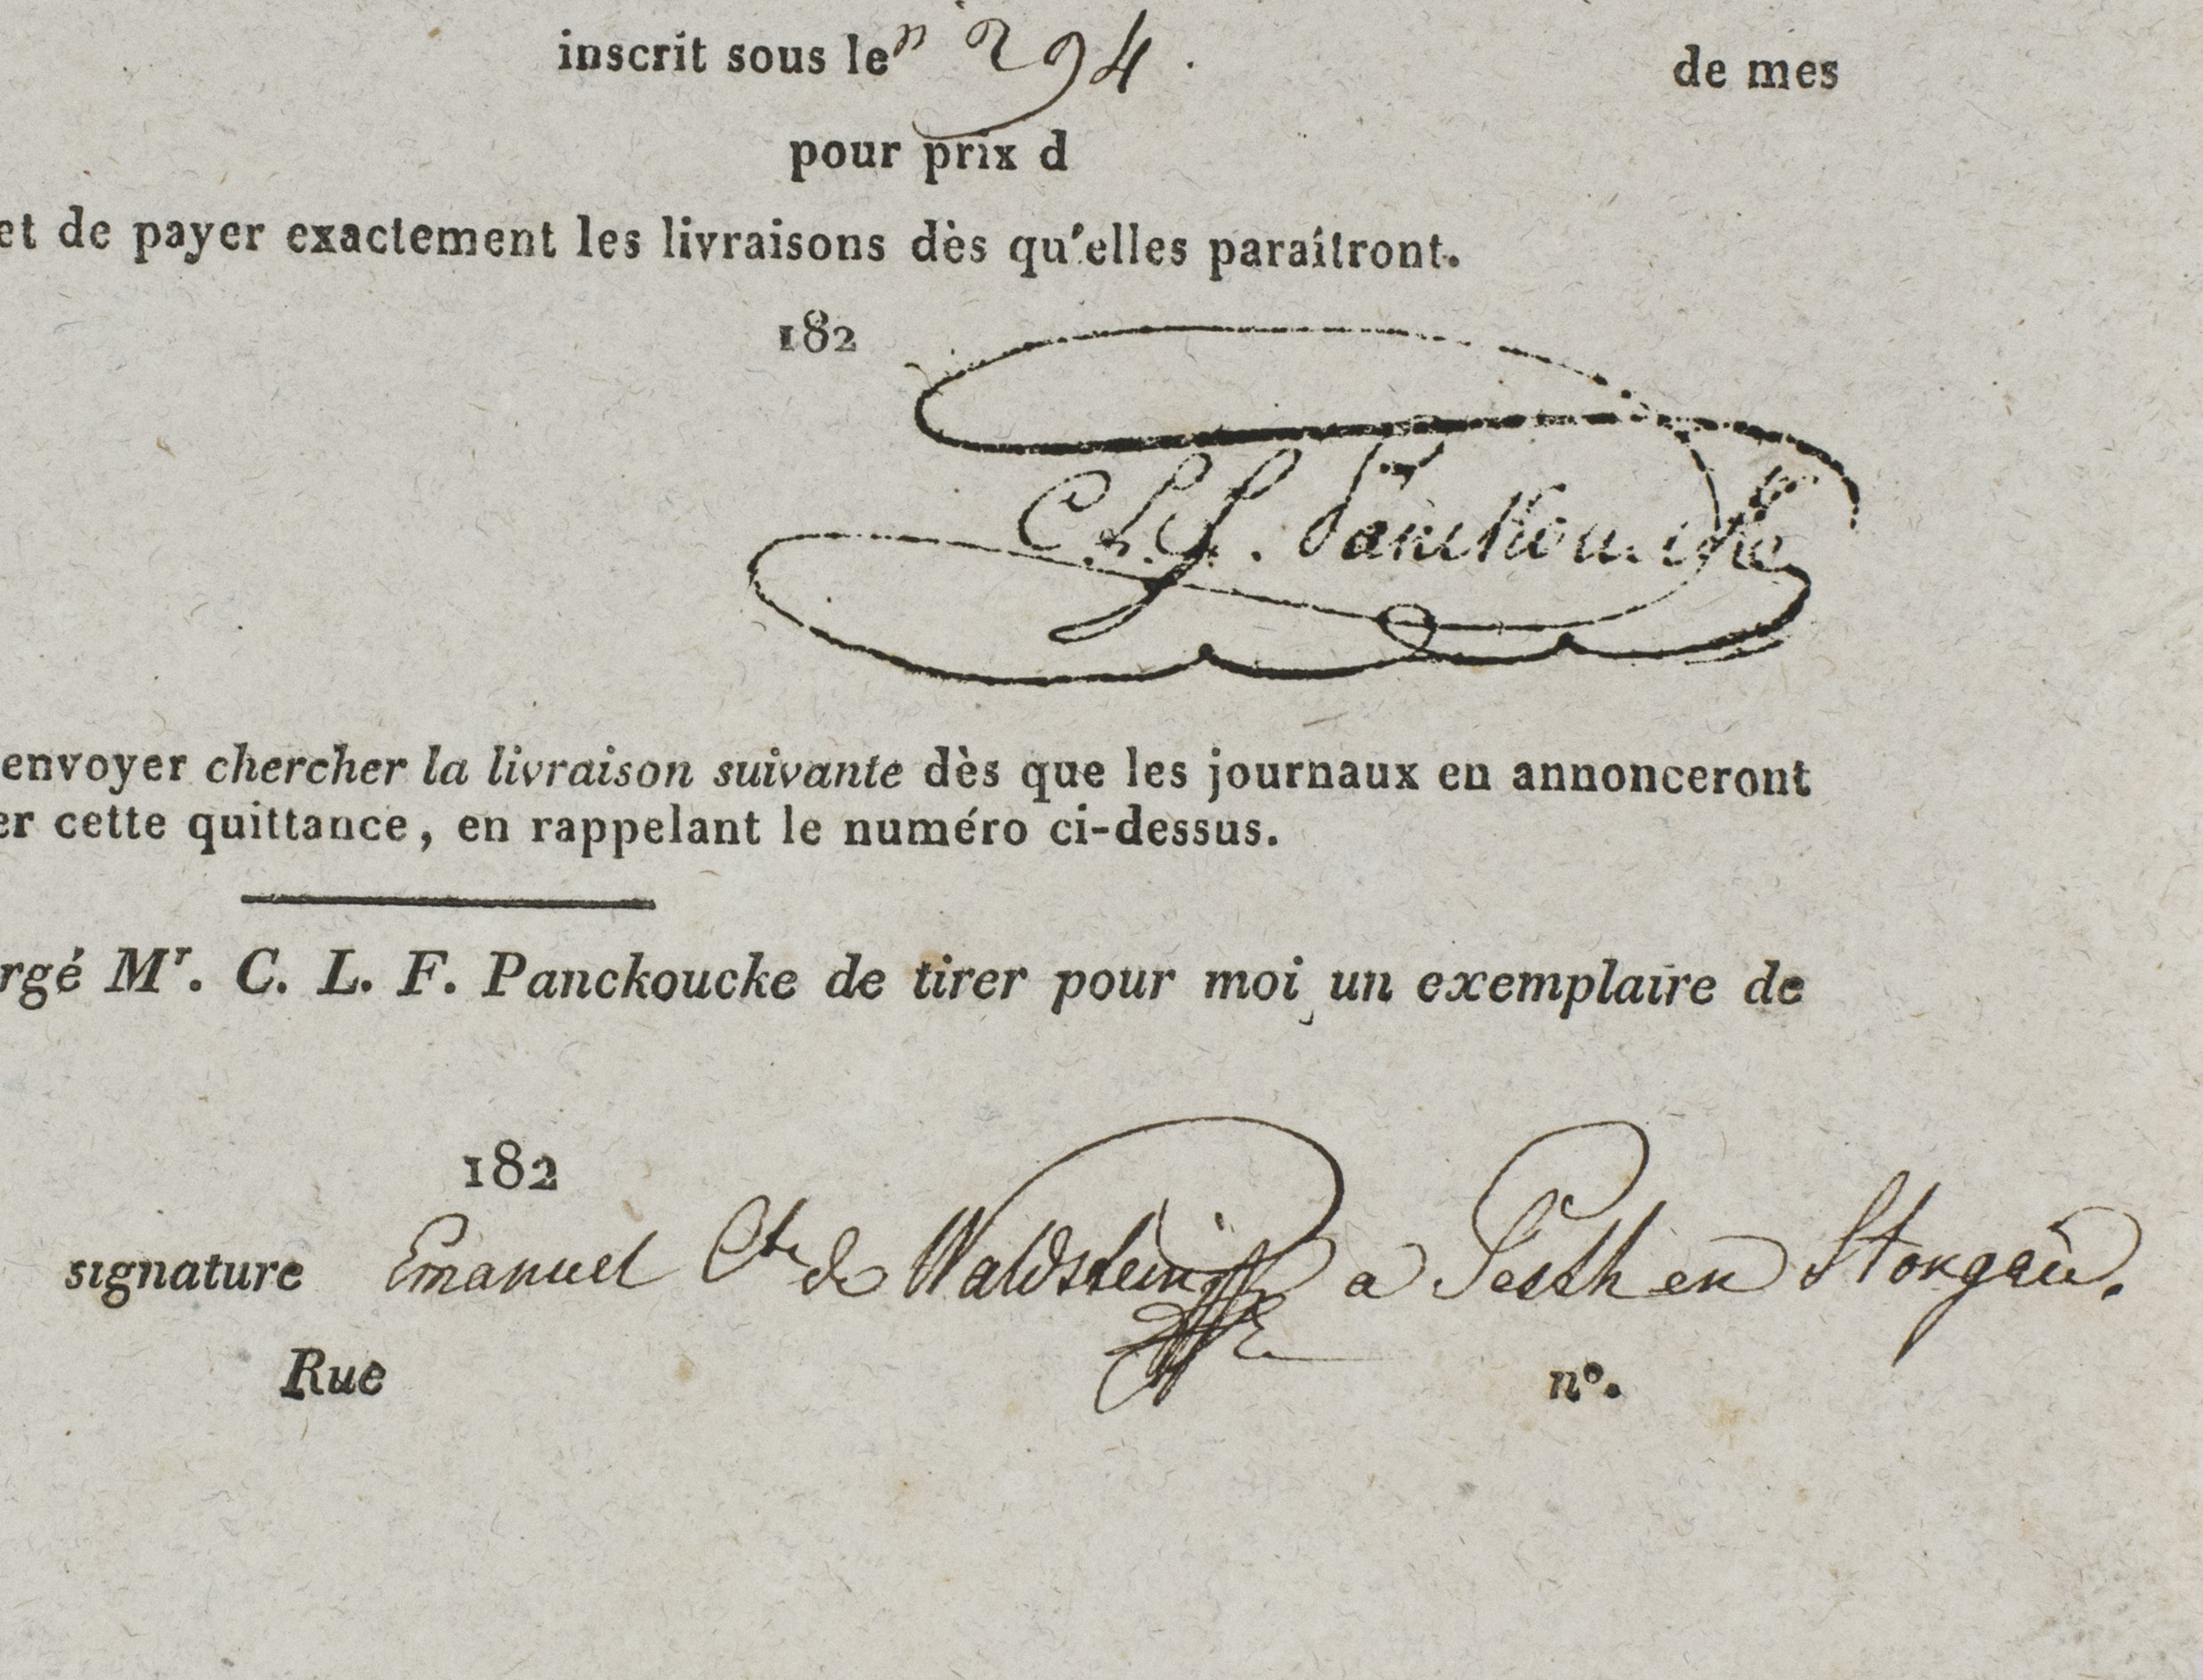 inscrit sous le n 294. de mes
pour prix d
et de payer exactement les livraisons dès qu'elles paraîtront.
182
C. L. F. Panckoucke
envoyer chercher la livraison suivante dès que les journaux en annonceront
er cette quittance, en rappelant le numéro ci-dessus.
rgé Mr. C. L. F. Panckoucke de tirer pour moi un exemplaire de
182
signature Emanuel Cte de Waldstein a Pesth en
Rue nº.